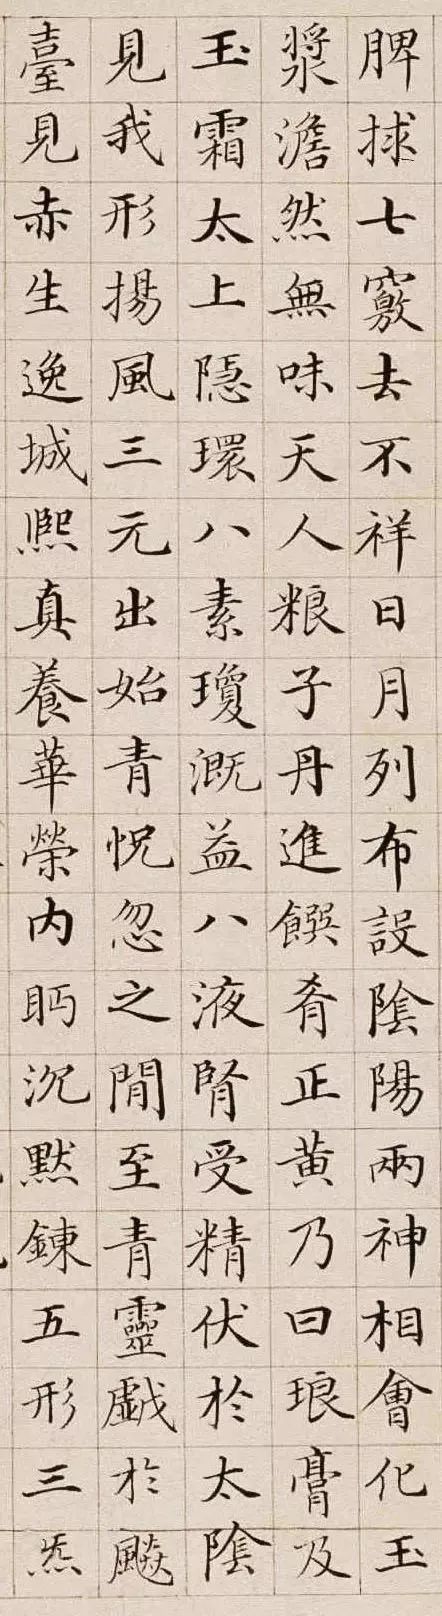 脾捄七竅去不祥日月列布設陰陽兩神相會化玉
漿澹然無味天人粮子丹進饌肴正黄乃曰琅膏及
玉霜太上隱環八素瓊溉益八液腎受精伏於太陰
見我形揚風三元出始青怳忽之間至青靈戯於飈
臺見赤生逸城熙真養華榮内眄沉默鍊五形三炁